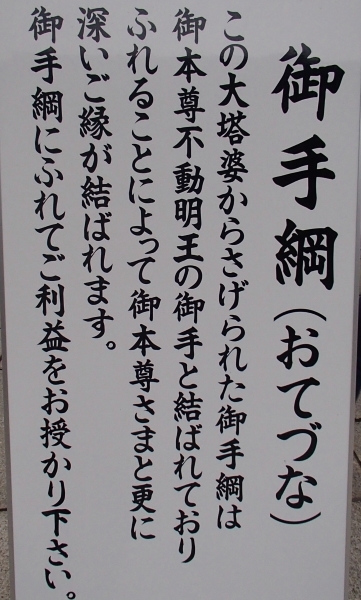 御手綱(おてづな)
この大塔婆からさげられた御手綱は
御本尊不動明王の御手と結ばれており
ふれることによって御本尊さまと更に
深いご縁が結ばれます。
御手綱にふれてご利益をお授かり下さい。